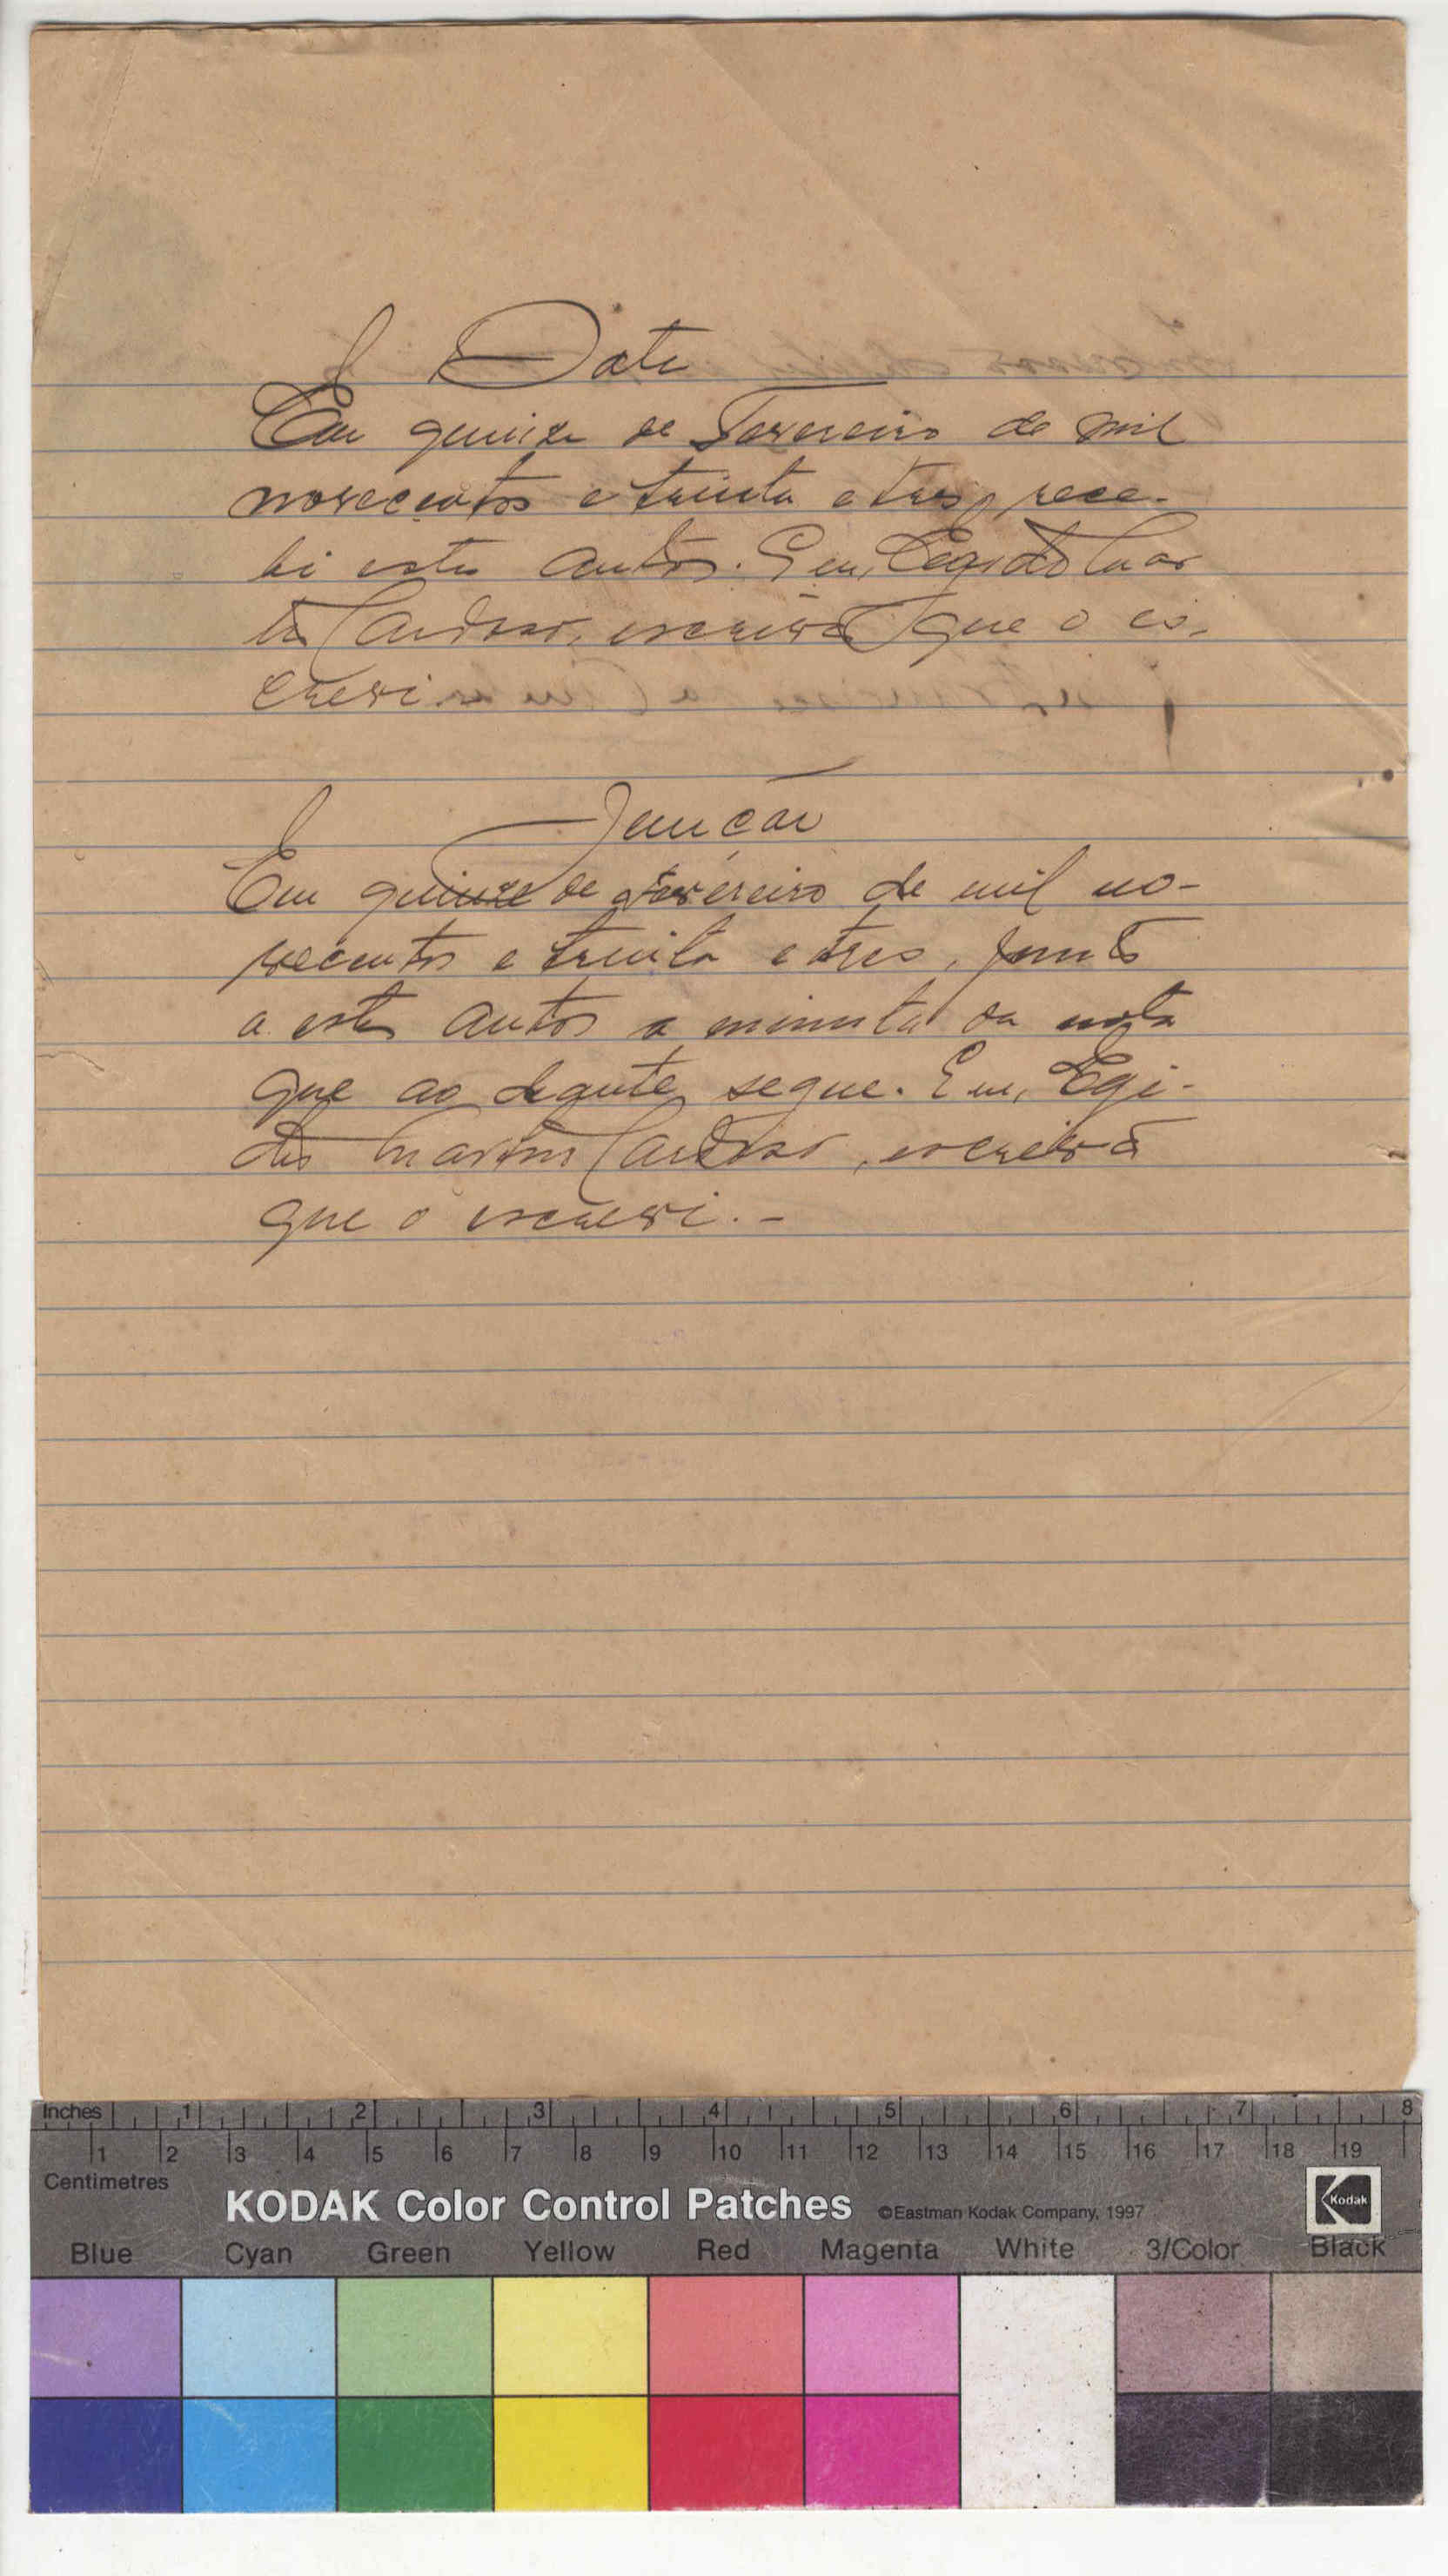 Data
Em quinze de Fevereiro de mil
novecentos e trinta e tres, rece-
bi estes autos. Eu, Egidio Mar
tins Cardoso, escrivão que o es-
crevi.
Juncão
Em quinze de fevereiro de mil no-
vecentos e trinta e tres, junto
a estes autos a minuta da nota
que ao deante segue. Eu, Egi-
dio Martins Cardoso, escrivão
que o escrevi. -
Inches 1 2 3 4 5 6 7 8
1 2 3 4 5 6 7 8 9 10 11 12 13 14 15 16 17 18 19
Centimetres
KODAK Color Control Patches ©Eastman Kodak Company, 1997 Kodak
Blue Cyan Green Yellow Red Magenta White 3/Color Black